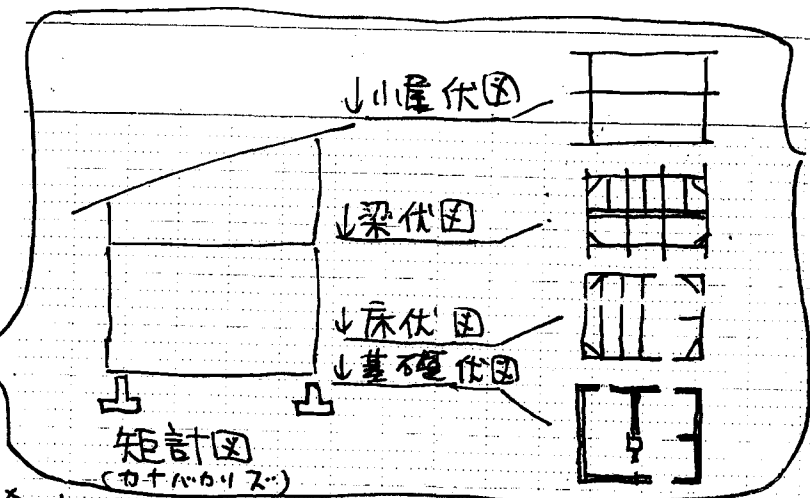 ↓小屋伏図
↓梁伏図
↓床伏図
↓基礎伏図
矩計図
(カナバカリズ)